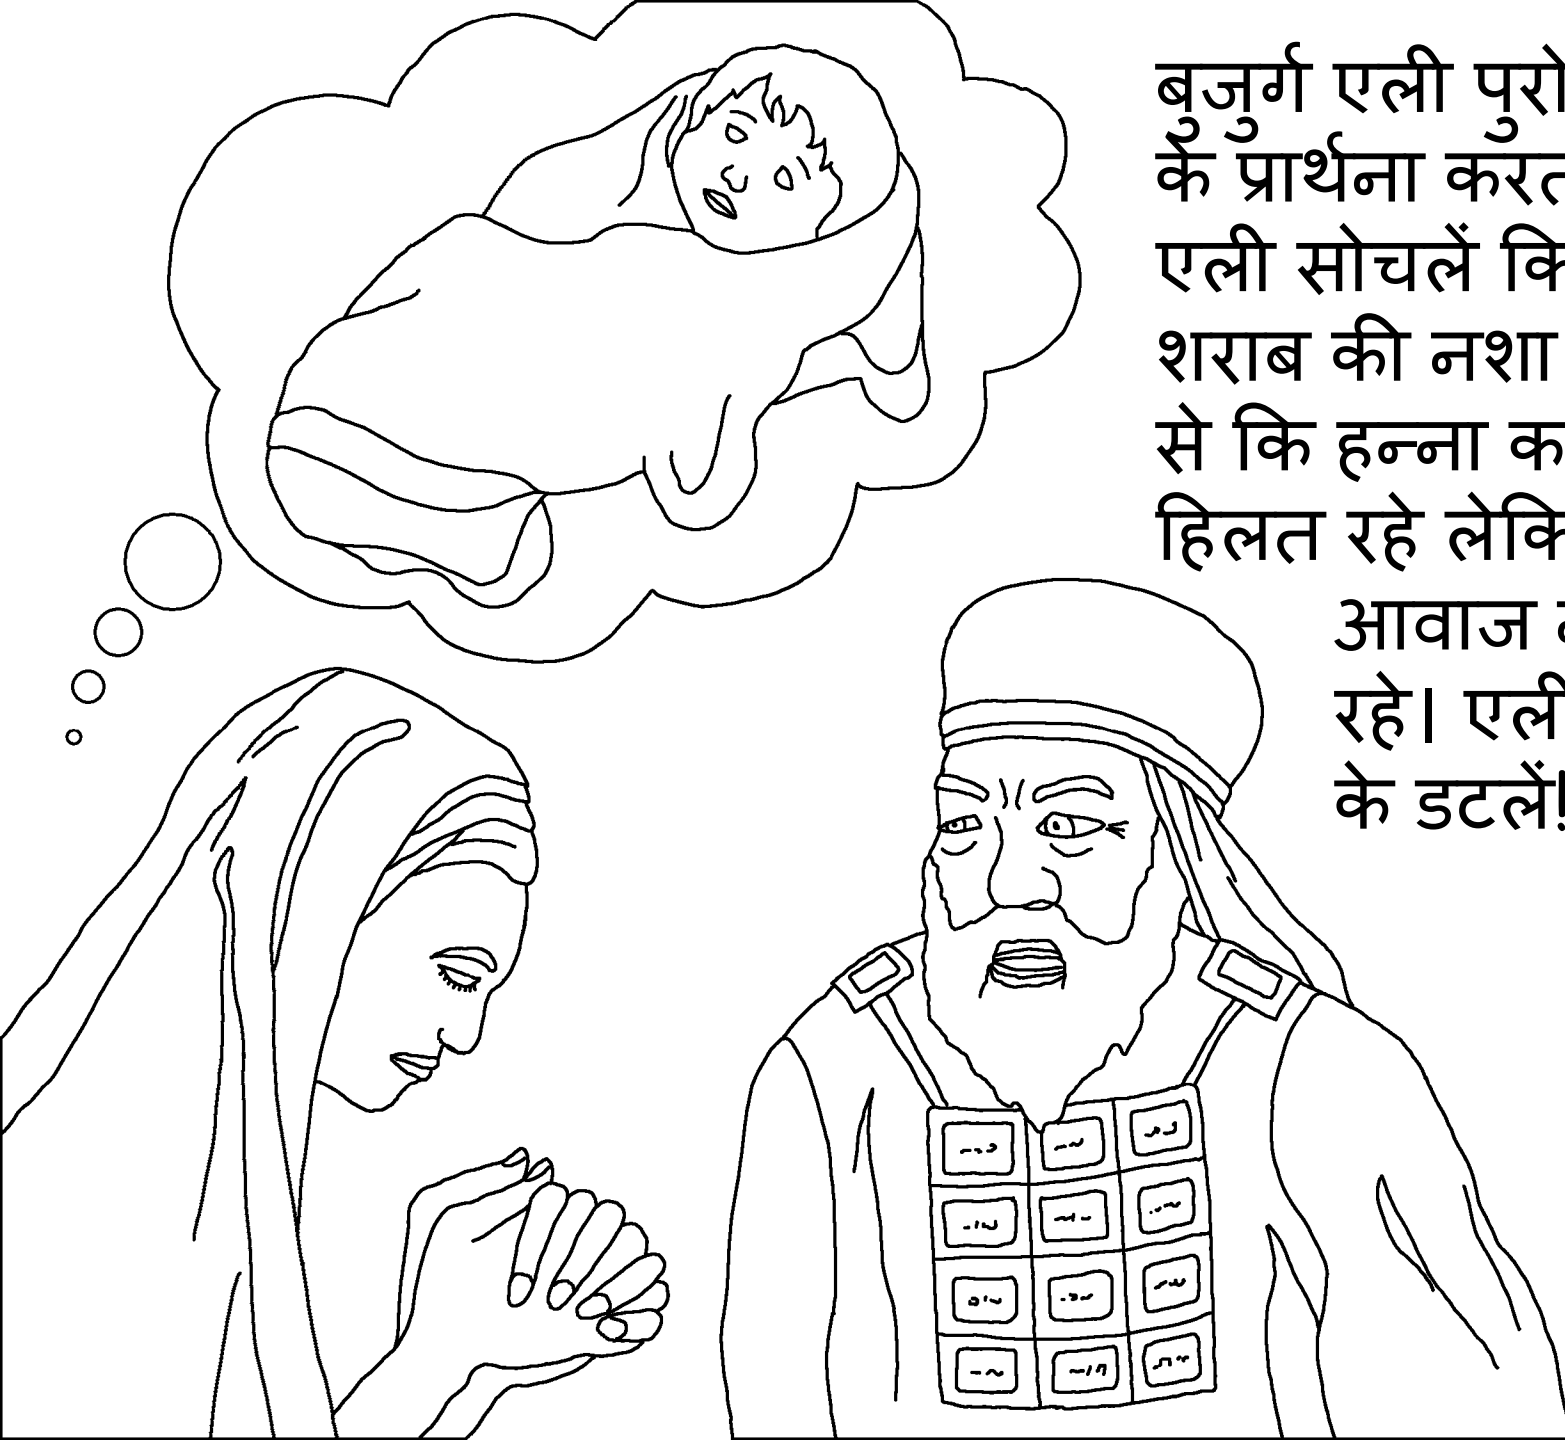 बुजुर्ग एली पुरो
के प्रार्थना करत
एली सोचलें कि
शराब की नशा
से कि हन्ना क
हिलत रहे लेकि
आवाज
रहे। एली
के डटलें!